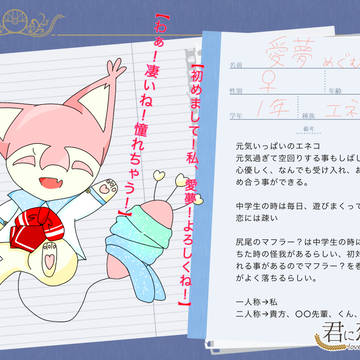 【わぁ！凄いね！憧れちゃう！】
【初めまして！私、愛夢！よろしくね！】
名前 愛夢 めぐむ
性別 ♀ 年齢
学年 1年 種族 エネ
備考
元気いっぱいのエネコ
元気過ぎて空回りする事もしばし
心優しく、なんでも受け入れ、お
め合う事ができる。
中学生の時は毎日、遊びまくって
恋には疎い
尻尾のマフラー？は中学生の時に
ちた時の怪我があるらしい、初対
れる事があるのでマフラー？を巻
がよく落ちるらしい。
一人称→私
二人称→貴方、〇〇先輩、くん、
君に